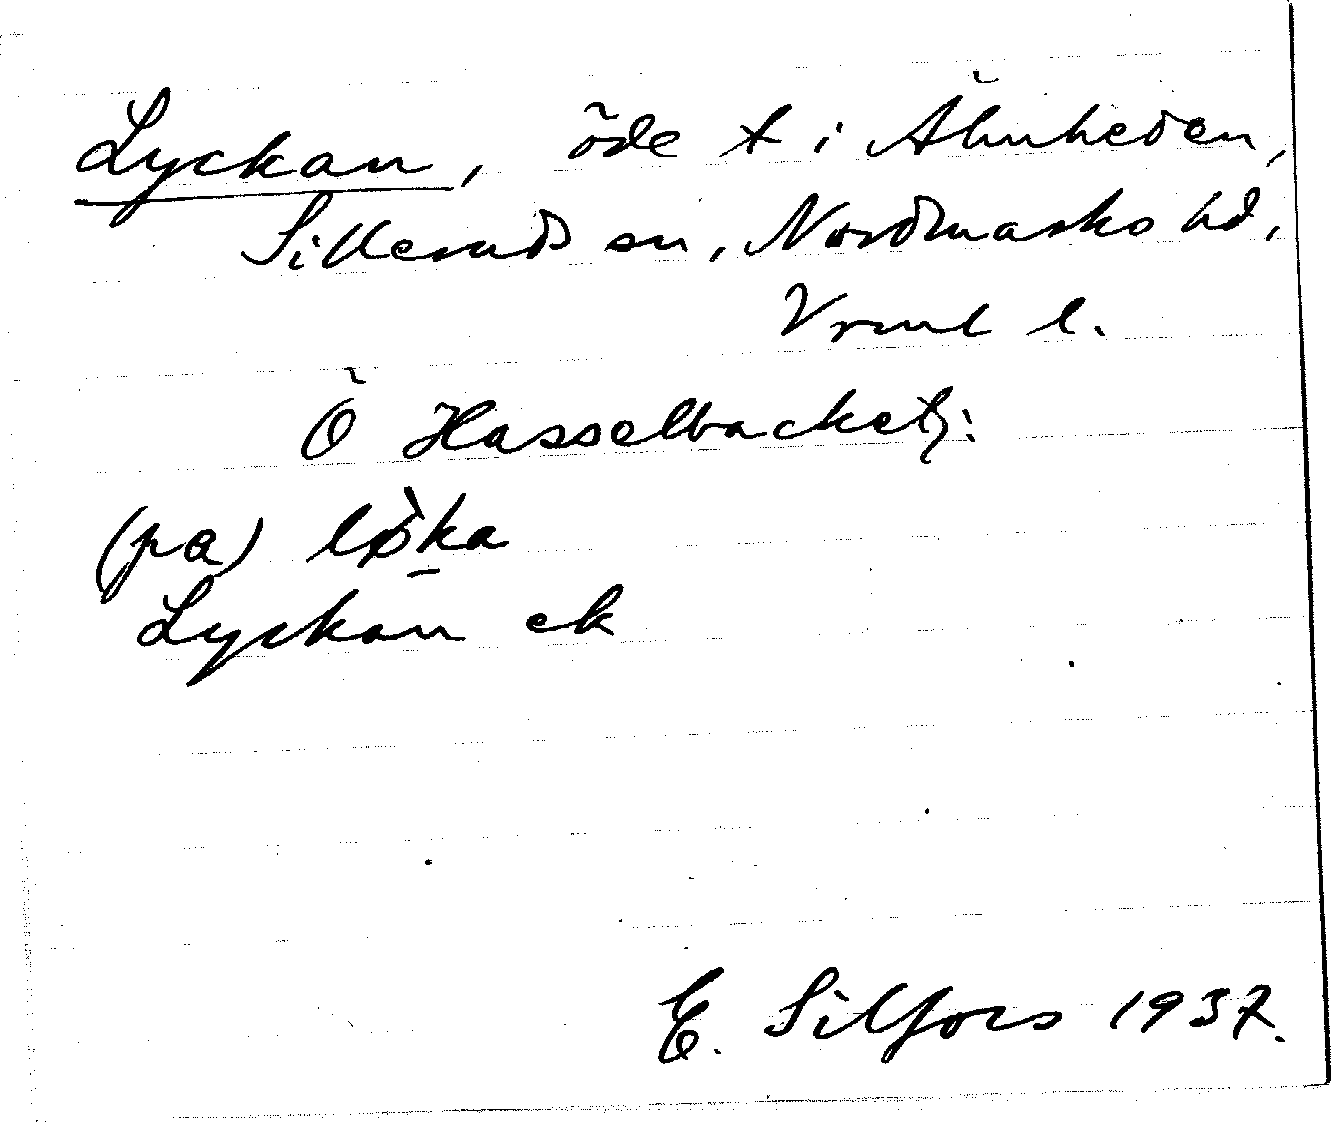 Lyckan, öde t i Älmheden,
Sillerud sn, Nordmarks hd,
Vrml l.
Ö Hasselbacket:
(pa) lø̀ka
Lyckan ek
E. Silfors 1937.